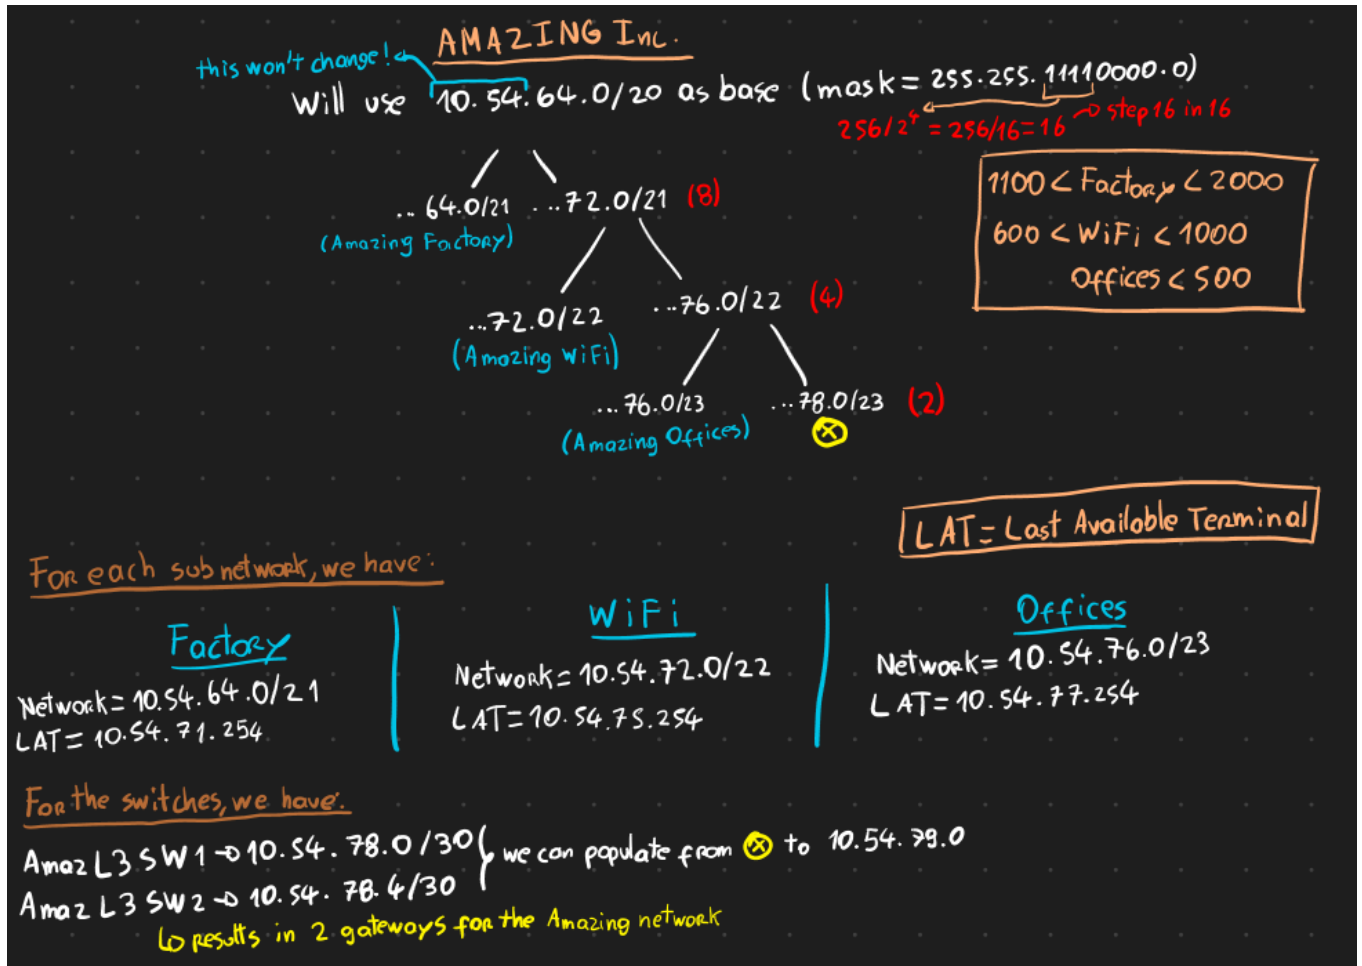 AMAZING Inc.
this won't change!
Will use 10.54.64.0/20 as base (mask = 255.255.11110000.0)
256/2^4 = 256/16 = 16 → step 16 in 16
1100 < Factory < 2000
600 < WiFi < 1000
Offices < 500
...64.0/21 ...72.0/21 (8)
(Amazing Factory)
...72.0/22 ...76.0/22 (4)
(Amazing WiFi)
...76.0/23 ...78.0/23 (2)
(Amazing Offices) ⊗
LAT = Last Available Terminal
For each subnetwork, we have:
Factory
Network = 10.54.64.0/21
LAT = 10.54.71.254
WiFi
Network = 10.54.72.0/22
LAT = 10.54.75.254
Offices
Network = 10.54.76.0/23
LAT = 10.54.77.254
For the switches, we have:
Amaz L3 SW1 → 10.54.78.0/30
Amaz L3 SW2 → 10.54.78.4/30
we can populate from ⊗ to 10.54.79.0
↳ results in 2 gateways for the Amazing network